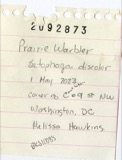 2U92873
Prairie Warbler
Setophaga discolor
1 May 2023
corner of C & 1st St NW
Washington, DC
Melissa Hawkins